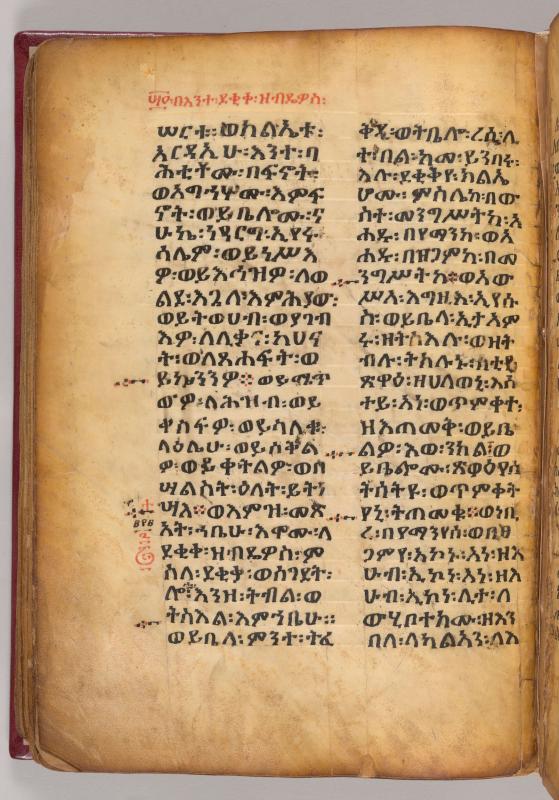 በእንተ፡ደቂቀ፡ዘብዴዎስ፡
ሠርቱ፡ወክልኤቱ፡
አርዳኢሁ፡እንተ፡ባ
ሕቲቶሙ፡በፍኖት፡
ወአግኀሦሙ፡እምፍ
ኖት፡ወይቤሎሙ፡ና
ሁኬ፡ነዓርግ፡ኢየሩ
ሳሌም፡ወይነሥእ
ዎ፡ወይእኅዝዎ፡ለወ
ልደ፡እጓለ፡እምሕያው፡
ወይትወሀብ፡ወያገብ
እዎ፡ለሊቃነ፡ካህና
ት፡ወለጸሐፍት፡ወ
ይኴንንዎ፡፡ወይሜጥ
ውዎ፡ለሕዝብ፡ወይ
ቀስፍዎ፡ወይሳለቁ፡
ላዕሌሁ፡ወይሰቅል
ዎ፡ወይቀትልዎ፡ወበ
ሣልስት፡ዕለት፡ይትነ
ሣእ፡፡ወእምዝ፡መጽ
አት፡ኀቤሁ፡እሞሙ፡ለ
ደቂቀ፡ዘብዴዎስ፡ም
ስለ፡ደቂቃ፡ወሰገደት፡
ሎቱ፡እንዘ፡ትብል፡ወ
ትስእል፡እምኀቤሁ፡፡
ወይቤላ፡ምንተ፡ትፈ
ቅዲ፡ወትቤሎ፡ረሲ፡ሊ
ተ፡በል፡ከመ፡ይንበሩ፡
እሉ፡ደቂቅየ፡ክልኤ
ሆሙ፡ምስሌከ፡በው
ስተ፡መንግሥትከ፡አ
ሐዱ፡በየማንከ፡ወአ
ሐዱ፡በፀጋምከ፡በመ
ንግሥትከ፡፡ወአው
ሥአ፡እግዚእ፡ኢየሱ
ስ፡ወይቤላ፡ኢታአም
ሩ፡ዘትስእሉ፡ወዘት
ብሉ፡ትክሉኑ፡ሰቲየ
ጽዋዐ፡ዘሀለወኒ፡እሰ
ተይ፡አነ፡ወጥምቀተ፡
ዘእጠመቅ፡ወይቤ
ልዎ፡እወ፡ንክል፡ወ
ይቤሎሙ፡ጽዋዕየሰ
ትሰትዩ፡ወጥምቀት
የኒ፡ትጠመቁ፡፡ወነቢ
ረ፡በየማንየሰ፡ወበፀ
ጋምየ፡አኮኑ፡አነ፡ዘእ
ሁብ፡ኢኮነ፡አነ፡ዘእ
ሁብ፡ኢኮነ፡ሊተ፡ለ
ውሂቦተክሙ፡ዘእን
በለ፡ለካልኣን፡ለእ